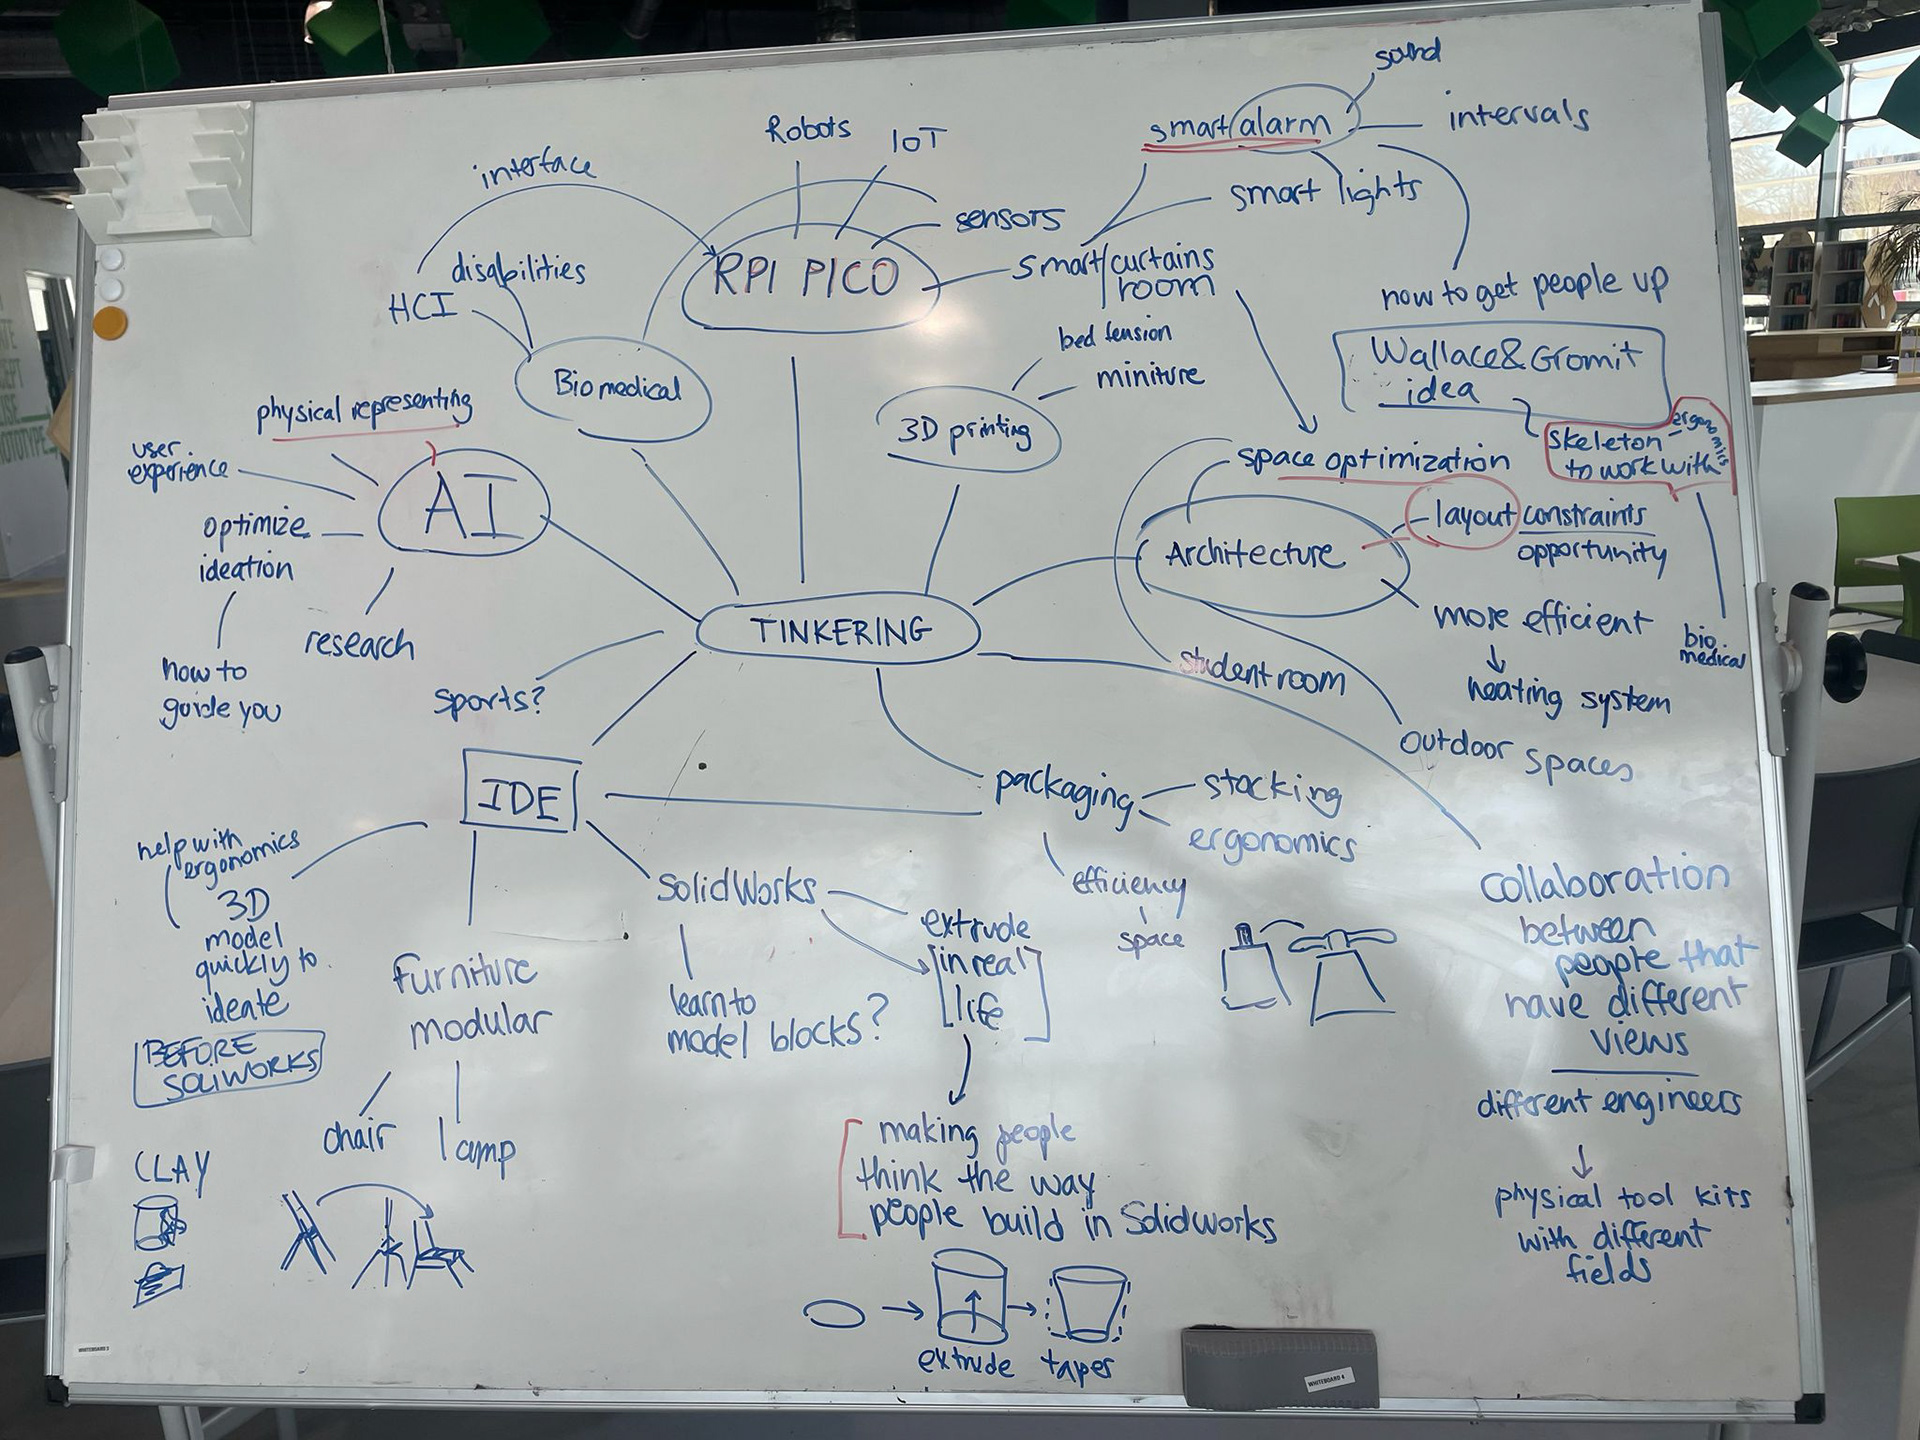 sound
smart/alarm
intervals
Robots
IoT
interface
smart lights
sensors
disabilities
HCI
RPI PICO
smart/curtains
room
how to get people up
bed tension
miniture
Wallace&Gromit
idea
Biomedical
3D printing
ergonomics
skeleton
to work with
physical representing
user
experience
AI
optimize
ideation
research
how to
guide you
space optimization
layout constraints
opportunity
Architecture
more efficient
heating system
bio
medical
TINKERING
student room
outdoor spaces
sports?
IDE
packaging
stacking
ergonomics
efficiency
space
help with
ergonomics
3D
model
quickly to
ideate
BEFORE
SOLIWORKS
CLAY
furniture
modular
chair
lamp
SolidWorks
learn to
model blocks?
extrude
[in real
life]
making people
think the way
people build in Solidworks
extrude
taper
collaboration
between
people that
have different
views
different engineers
physical tool kits
with different
fields
WHITEBOARD 3
WHITEBOARD 4